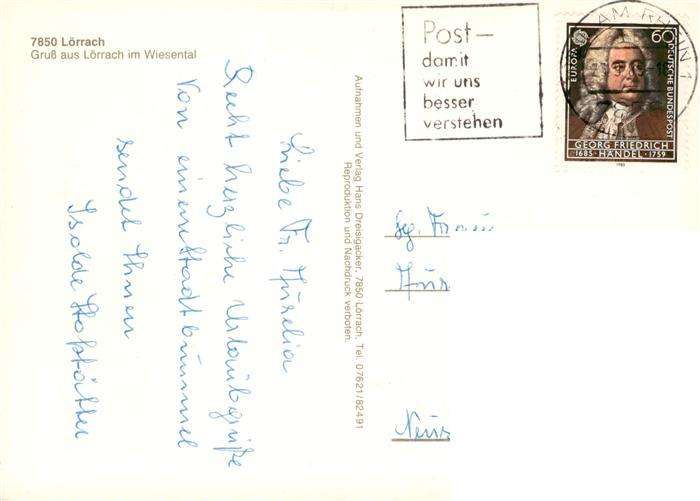 7850 Lörrach
Gruß aus Lörrach im Wiesental
Post –
damit
wir uns
besser
verstehen
AM RHEIN 1
EUROPA
60
DEUTSCHE BUNDESPOST
GEORG FRIEDRICH
1685 · HÄNDEL · 1759
1985
Liebe Fr. Aurelia
Recht herzliche Urlaubsgrüße
von einem Stadtbummel
sendet Ihnen
Isolde
Aufnahmen und Verlag Hans Dreisigacker, 7850 Lörrach, Tel. 07621/82491
Reproduktion und Nachdruck verboten.